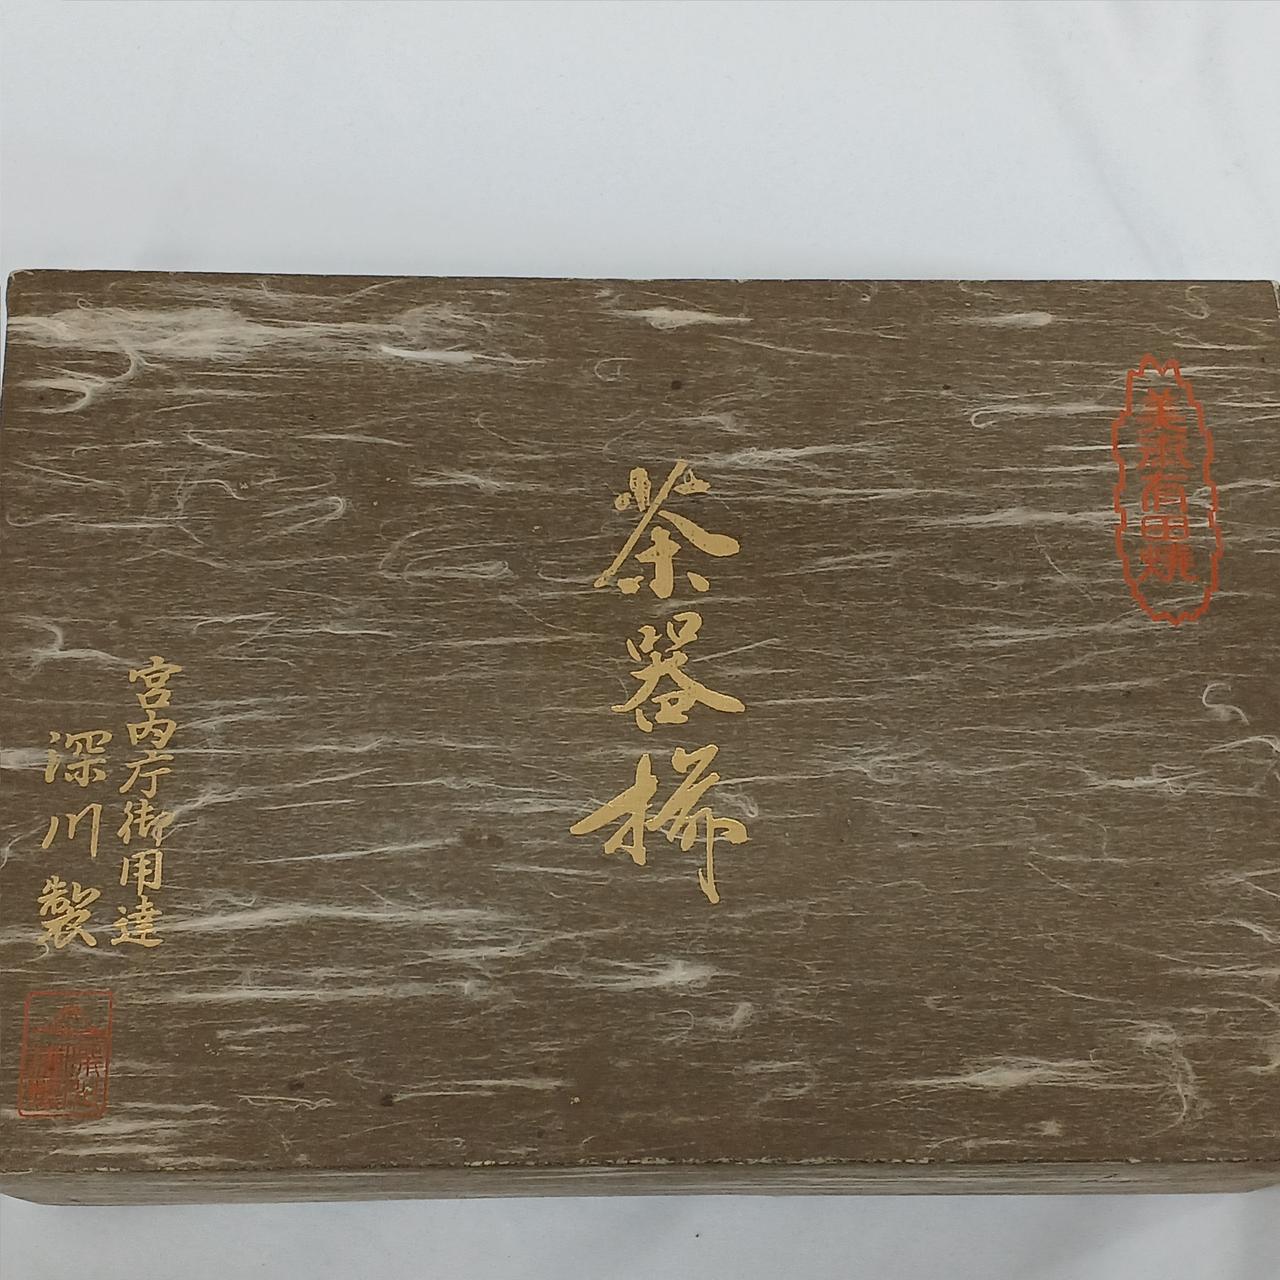 美術有田焼
茶器揃
宮内庁御用達
深川製